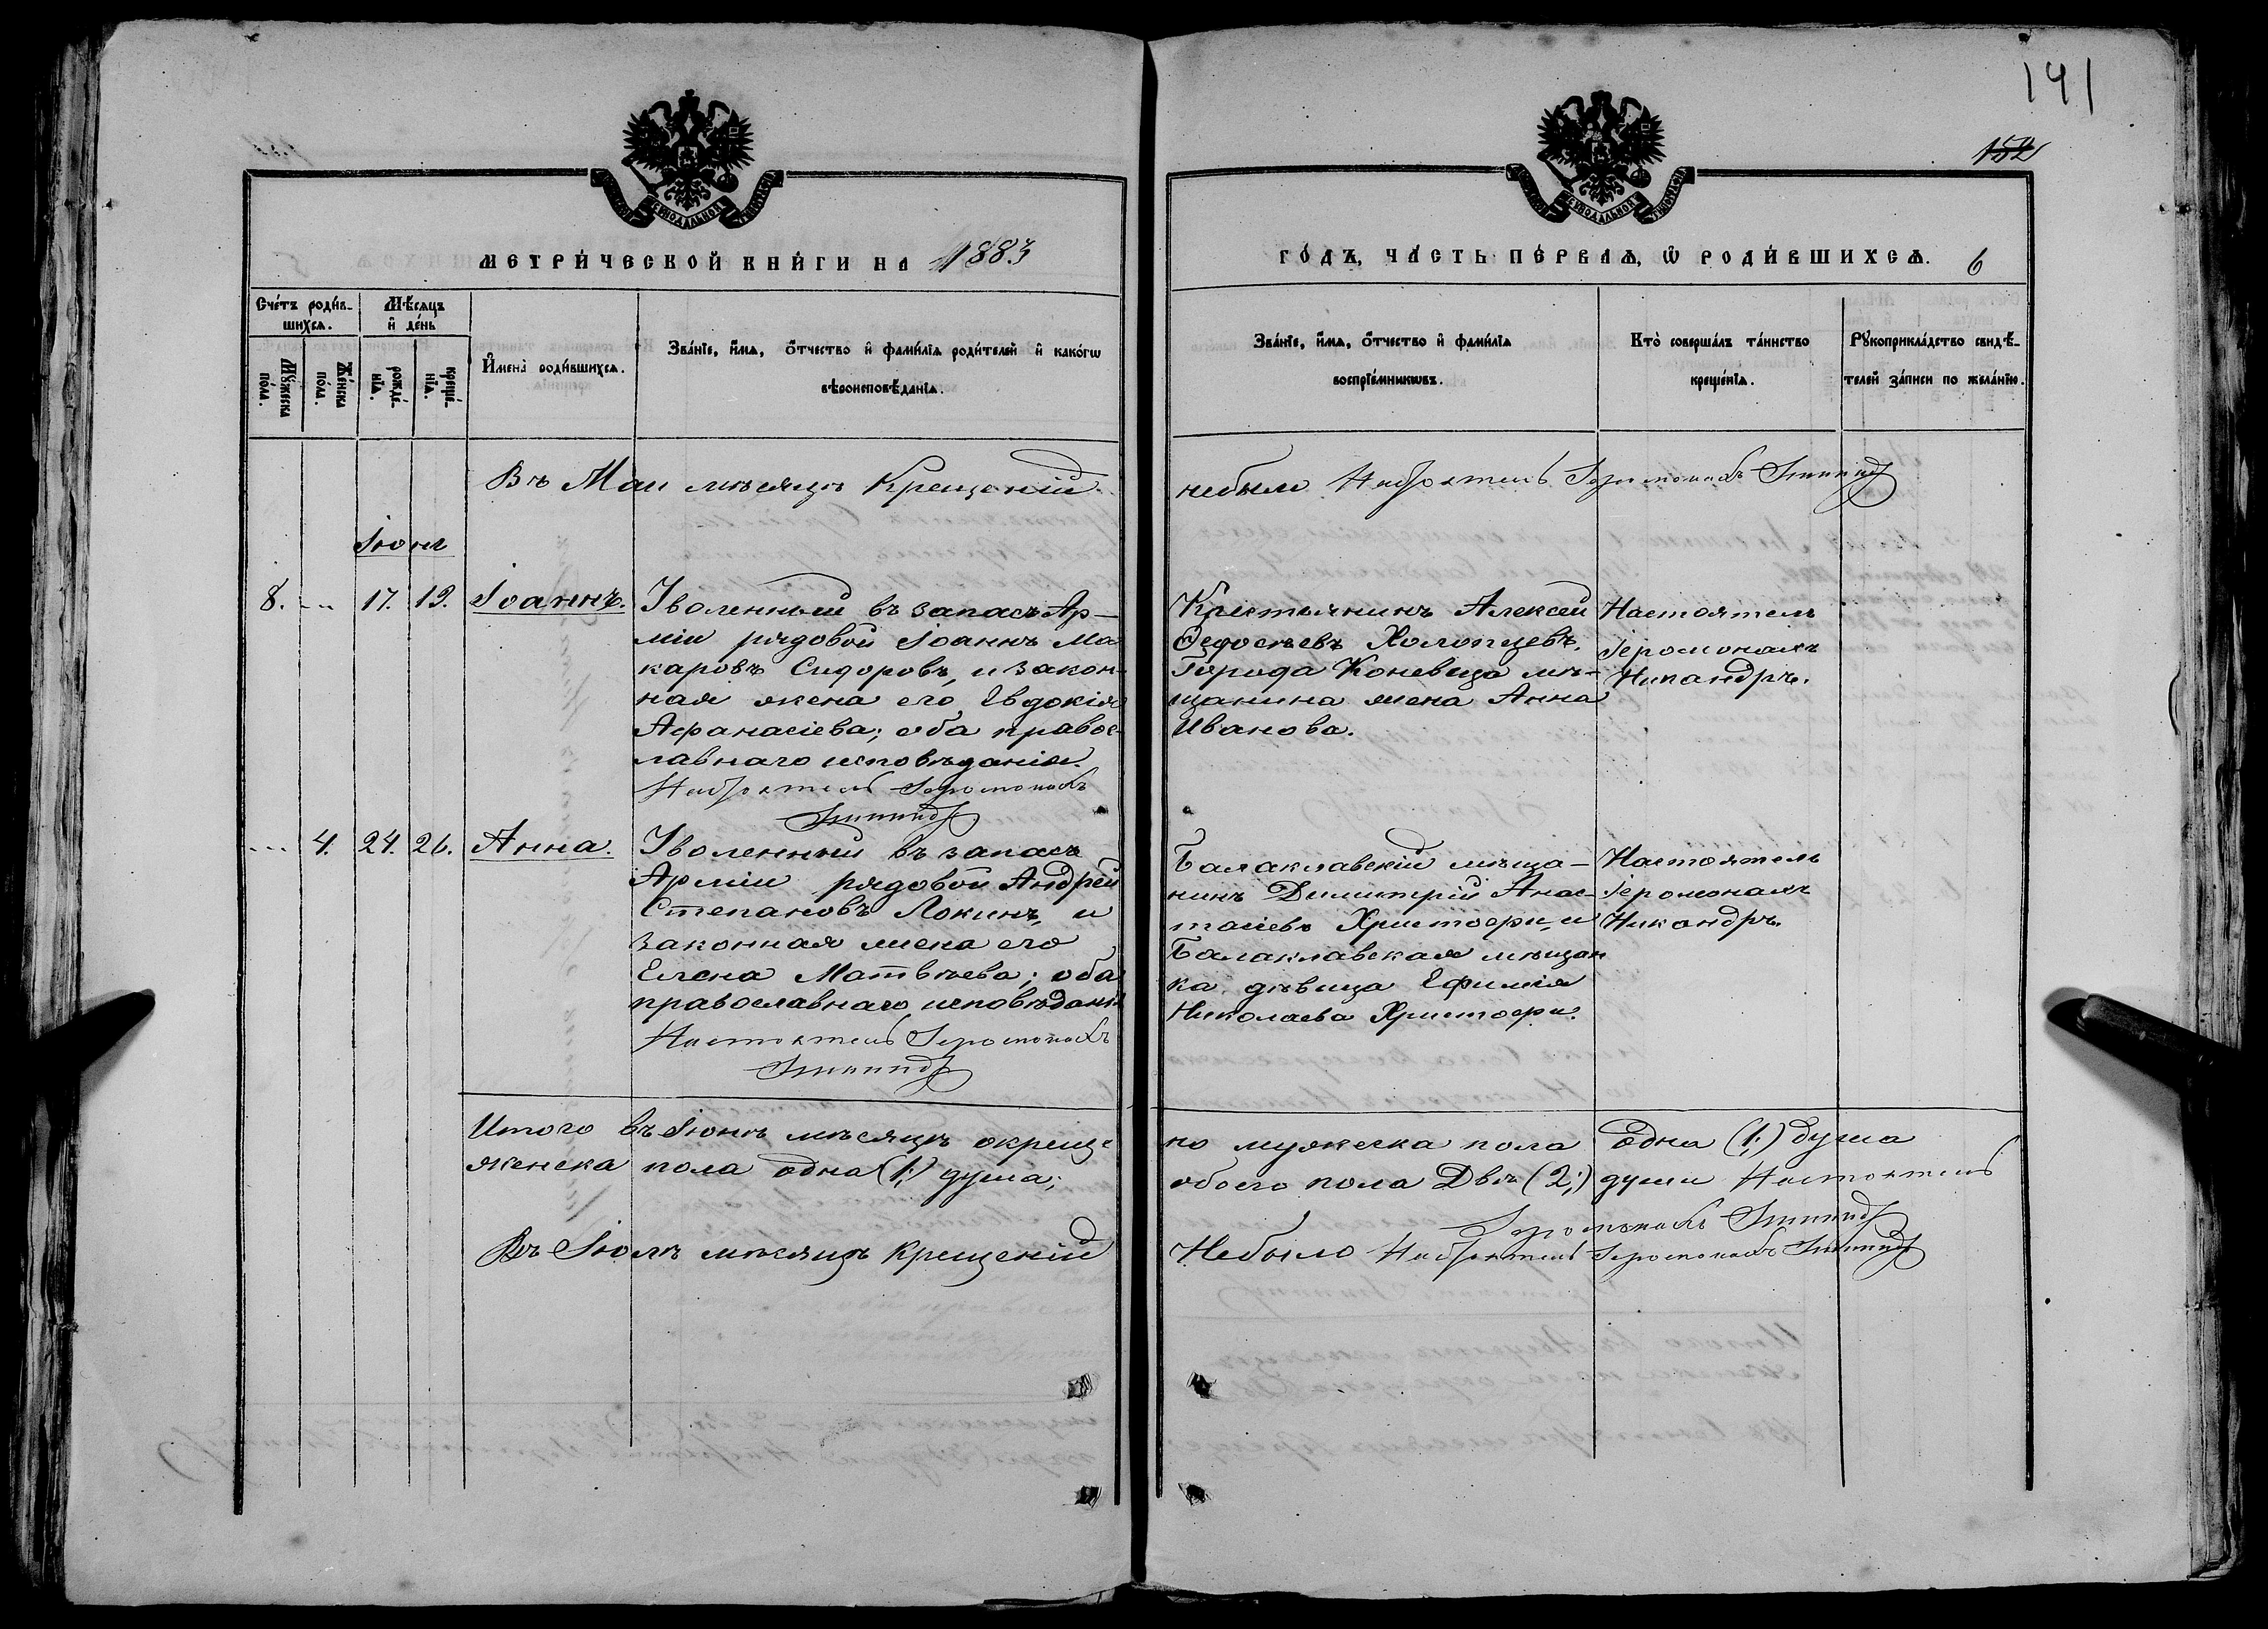 141
152
СѴНОДАЛЬНОЙ
СѴНОДАЛЬНОЙ
МЕТРИ́ЧЕСКОЙ КНИ́ГИ НА 1883
ГО́ДЪ, ЧА́СТЬ ПЕ́РВАѦ, Ѡ РОДИ́ВШИХСѦ. 6
Сче́тъ роди́в-
шихсѧ.
Мѣ́сѧцъ
и҆ де́нь
Мꙋ́жеска
по́ла.
Же́нска
по́ла.
рожде́-
нїѧ.
креще́-
нїѧ.
И҆мена̀ роди́вшихсѧ.
Зва́нїе, и҆́мѧ, ѻ҆́тчество и҆ фамі́лїѧ роди́телей и҆ како́гѡ
вѣроисповѣ́данїѧ.
Зва́нїе, и҆́мѧ, ѻ҆́тчество и҆ фамі́лїѧ
воспрїе́мникѡвъ.
Кто̀ соверша́лъ та́инство
креще́нїѧ.
Рꙋкоприкла́дство свидѣ́-
телей за́писи по жела́нїю.
Въ Маи мѣсяцѣ Крещеній
небыло Настоятель Іеромонахъ Никандръ
Іюнь
8. -- 17. 19. Іоаннъ.
Уволенный въ запасъ Ар-
міи рядовой Іоаннъ Ма-
каровъ Сидоровъ, и закон-
ная жена его Евдокія
Афанасіева; оба правос-
лавнаго исповѣданія.
Настоятель Іеромонахъ
Никандръ
Крестьянинъ Алексей
Федосѣевъ Холопцевъ.
Города Коневеца мѣ-
щанина жена Анна
Иванова.
Настоятель
Іеромонахъ
Никандръ.
--- 4. 24. 26. Анна.
Уволенный въ запасъ
Арміи рядовой Андрей
Степановъ Локинъ, и
законная жена его
Елена Матвѣева; оба
православнаго исповѣданія
Настоятель Іеромонахъ
Никандръ
Балаклавскій мѣща-
нинъ Димитрій Анас-
тасіевъ Христоери, и
Балаклавская мѣщан
ка дѣвица Ефимія
Николаева Христоери.
Настоятель
Іеромонахъ
Никандръ.
Итого въ Іюнѣ мѣсяцѣ окреще
но мужеска пола одна (1;) душа
женска пола одна (1;) душа;
обоего пола Двѣ (2;) души Настоятель
Іеромонахъ Никандръ
Въ Іюлѣ мѣсяцѣ Крещеній
Небыло Настоятель Іеромонахъ Никандръ